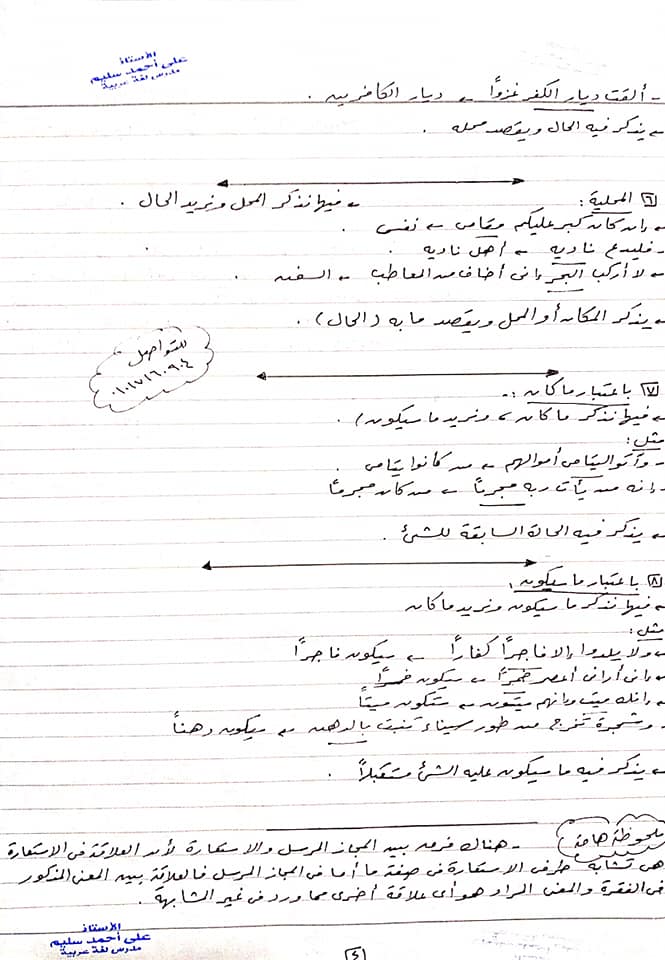 الأستاذ
على أحمد سليم
مدرس لغة عربية
- ألقت ديار الكفر غزوًا ← ديار الكافرين .
← يذكر فيه الحال ويقصد محله .
٦ المحلية : ← فيها نذكر المحل ونريد الحال .
← إن كان كبر عليكم مقامى ← نفسى
- فليدع ناديه ← أهل ناديه .
← لا أركب البحر إنى أخاف منه المعاطب ← السفن .
← يذكر المكان أو المحل ويقصد ما به ( الحال ) .
للتواصل
٠١٠١٧١٦٠٩٠٤
٧ باعتبار ما كان :-
← فيها نذكر ما كان ، ونريد ما سيكون ) .
مثل :
- وآتوا اليتامى أموالهم ← من كانوا يتامى .
- إنه من يأت ربه مجرمًا ← من كان مجرمًا
← يذكر فيه الحالة السابقة للشئ .
٨ باعتبار ما سيكون :
← فيها نذكر ما سيكون ونريد ما كان
مثل :
← ولا يلدوا إلا فاجرًا كفارًا ← سيكون فاجرًا
← إنى أرانى أعصر خمرًا ← سيكون خمرًا
← إنك ميت وإنهم ميتون ← ستكون ميتًا
- وشجرة تخرج من طور سيناء تنبت بالدهن ← سيكون دهنًا
← يذكر فيه ما سيكون عليه الشئ مستقبلاً .
ملحوظة هامة - هناك فرق بين المجاز المرسل والاستعارة لأن العلاقة فى الاستعارة
هى تشابه طرفى الاستعارة فى صفة ما أما فى المجاز المرسل فالعلاقة بين المعنى المذكور
فى الفقرة والمعنى المراد هو أى علاقة أخرى مما ورد فى غير المشابهة .
الأستاذ
على أحمد سليم
مدرس لغة عربية
٤